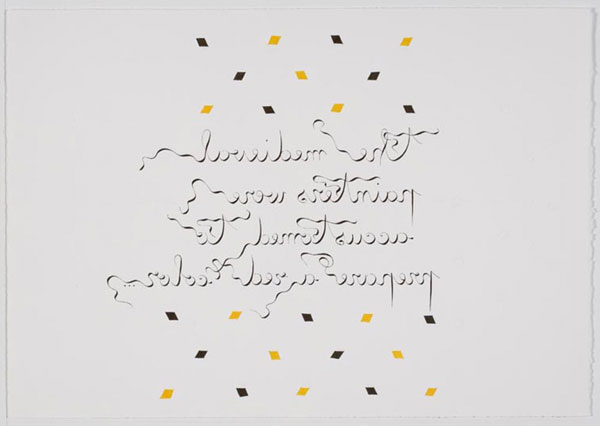 the medieval
painters were
accustomed to
prepare a red color...